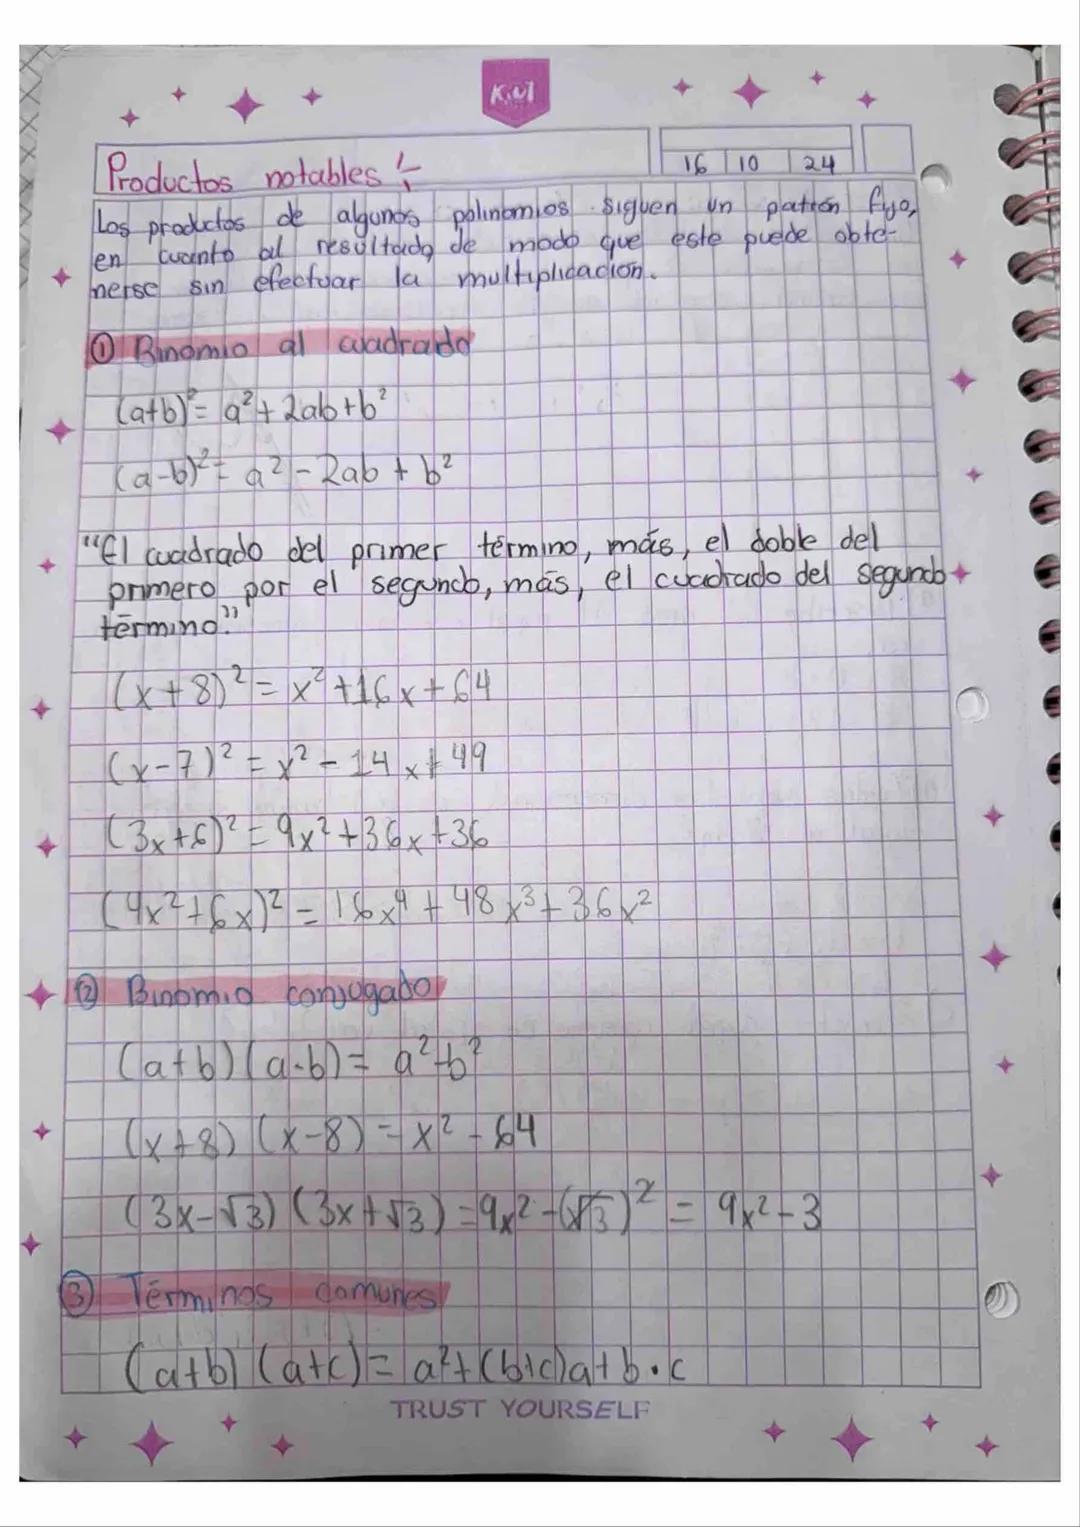 KIUT
Productos notables :
16 10 24
Los productos de algunos polinomios siguen un patrón fijo,
en cuanto al resultado de modo que este puede obte-
nerse sin efectuar la multiplicación.
① Binomio al cuadrado
(a+b)² = a² + 2ab + b²
(a-b)² = a² - 2ab + b²
"El cuadrado del primer término, más, el doble del
primero por el segundo, más, el cuadrado del segundo
término."
(x+8)² = x² + 16x + 64
(x-7)² = x² - 14x + 49
(3x+6)² = 9x² + 36x + 36
(4x²+6x)² = 16x⁴ + 48x³ + 36x²
② Binomio conjugado
(a+b)(a-b) = a² - b²
(x+8)(x-8) = x² - 64
(3x-√3)(3x+√3) = 9x² - (√3)² = 9x² - 3
③ Términos comunes
(a+b)(a+c) = a² + (b+c)a + b·c
TRUST YOURSELF